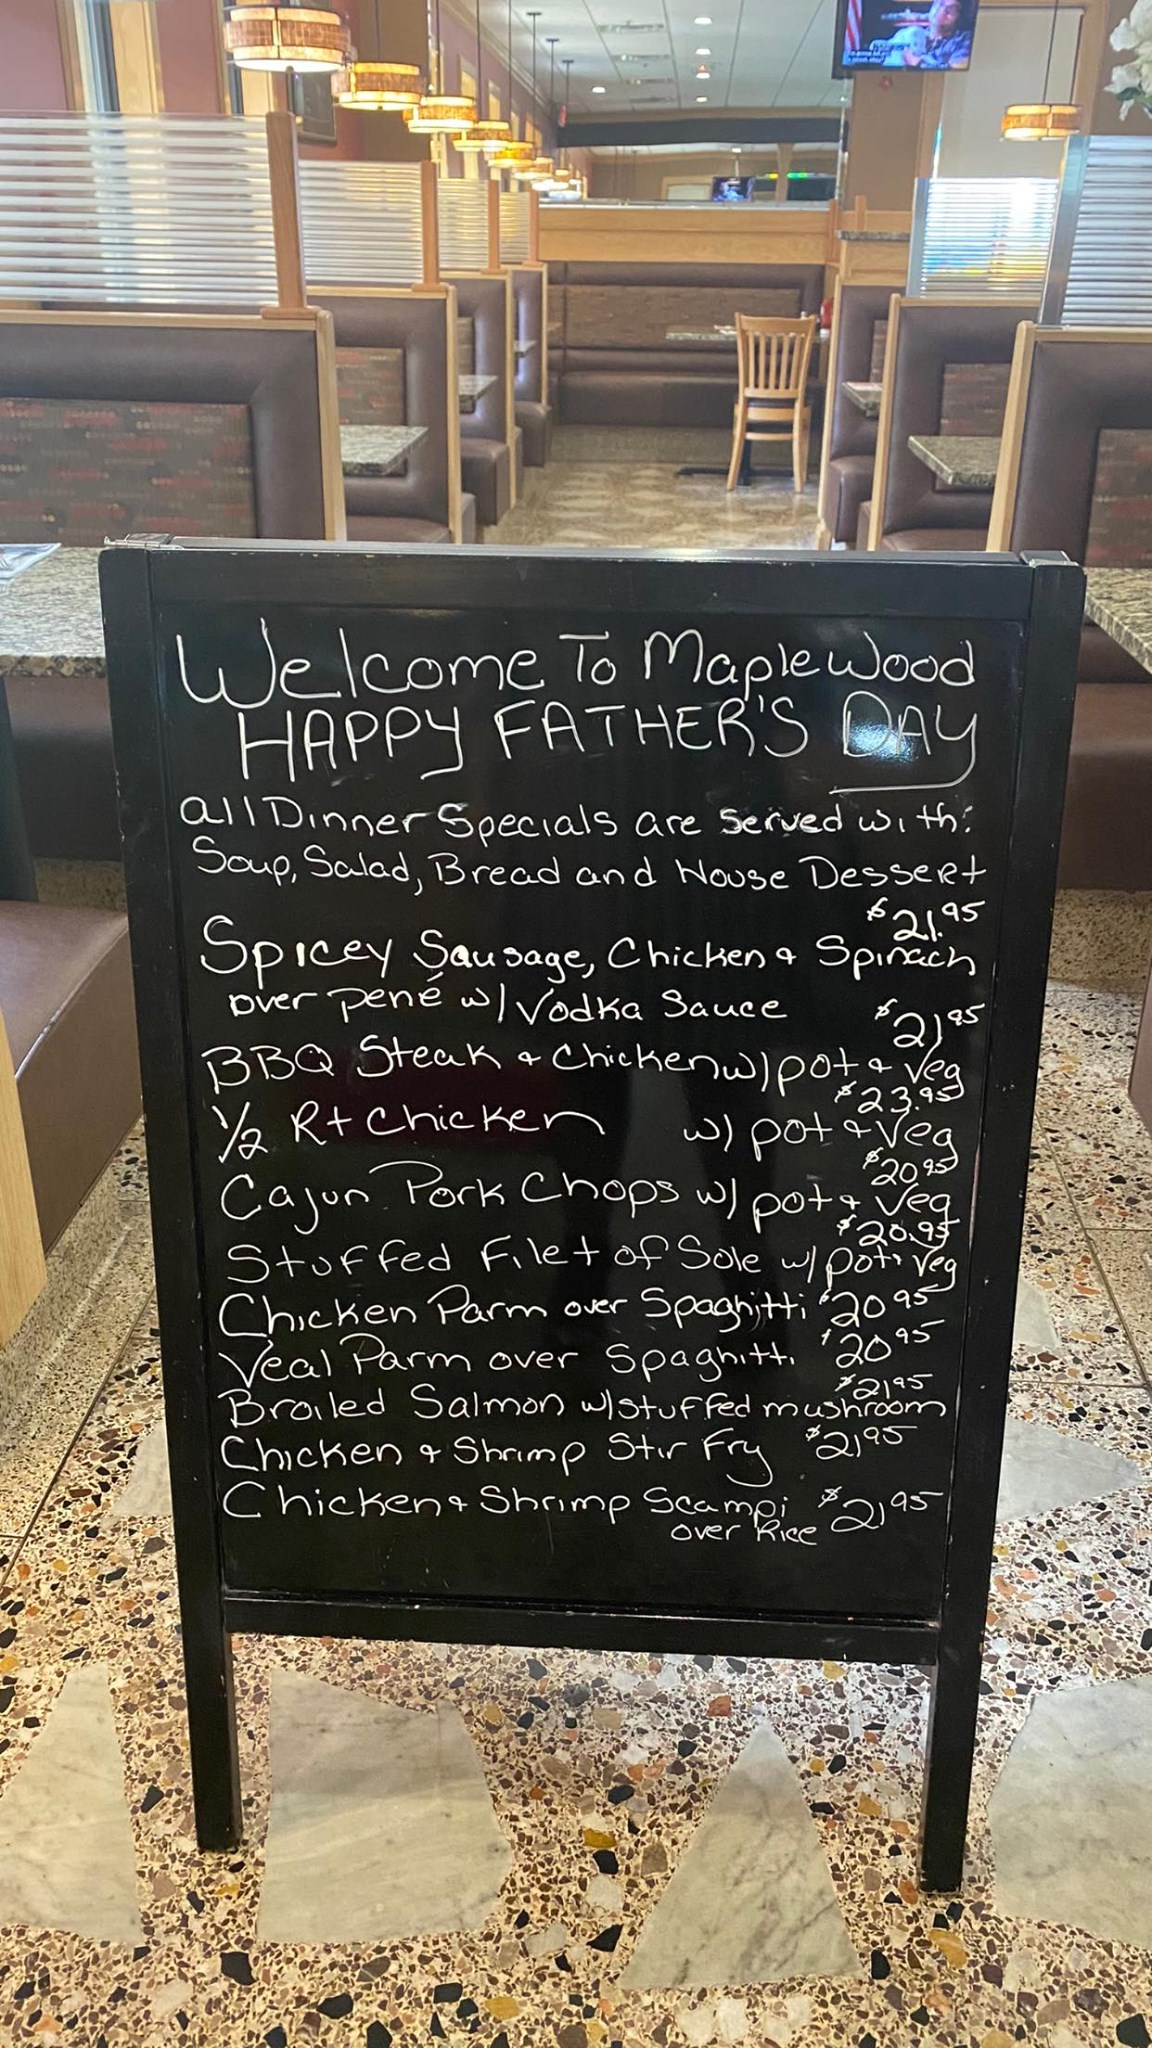 Welcome To Maplewood
HAPPY FATHER'S DAY
all Dinner Specials are served with:
Soup, Salad, Bread and House Dessert
$21.95
Spicey Sausage, Chicken & Spinach
over pené w/ Vodka Sauce
$21.95
BBQ Steak & Chicken w/ pot & Veg
$23.95
1/2 Rt Chicken w/ pot & Veg
$20.95
Cajun Pork Chops w/ pot & Veg
$20.95
Stuffed Filet of Sole w/ pot & Veg
Chicken Parm over Spaghitti $20.95
Veal Parm over Spaghitti $20.95
$21.95
Broiled Salmon w/ stuffed mushroom
Chicken & Shrimp Stir Fry $21.95
Chicken & Shrimp Scampi $21.95
over Rice